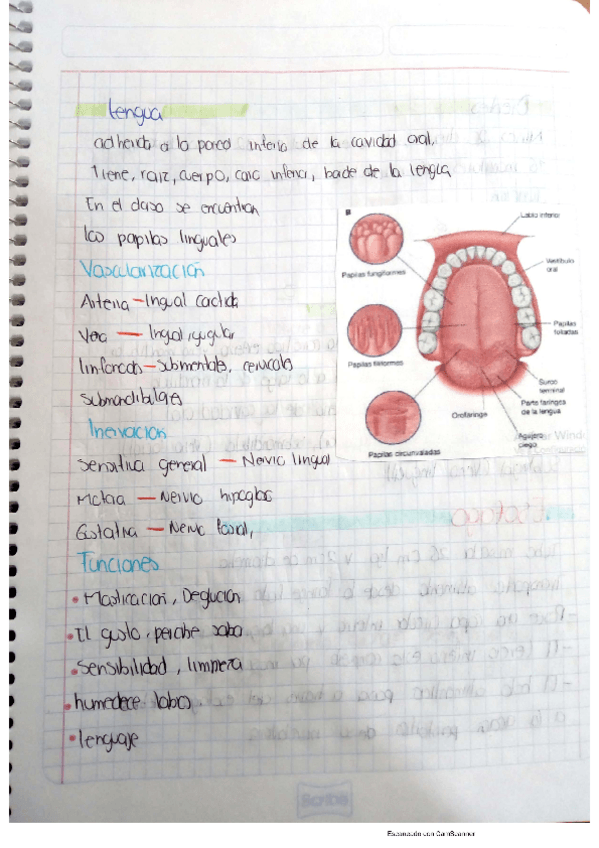 Lengua
adherida a la pared inferio de la cavidad oral,
Tiene, raiz, cuerpo, cara inferior, base de la lengua
En el dorso se encuentran
las papilas linguales
Vascularización
Arteria - lingual carotida
Vena - lingual, yugular
linfaticos - submentales, cervicales
submandibulares
Inervación
sensitiva general - Nervio lingual
Motora - Nervio hipogloso
Gustativa - Nervio facial,
Funciones
• Masticación, Deglución
• El gusto, percibe sabor
• sensibilidad, limpieza
• humedece labios
• lenguaje
B
Labio inferior
Vestíbulo
oral
Papilas fungiformes
Papilas
foliadas
Papilas filiformes
Surco
terminal
Parte faríngea
de la lengua
Orofaringe
Agujero
ciego
Papilas circunvaladas
Scribe
Escaneado con CamScanner